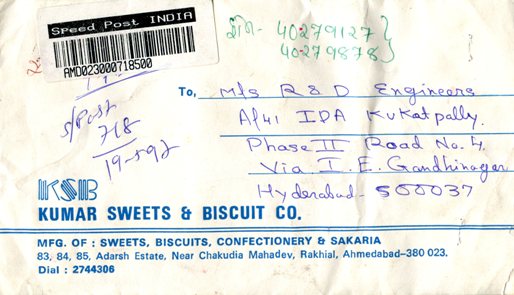 Speed Post INDIA
AMD023000718500
ફોન- 40279127
40-279878
To, M/s R & D Engineers
A/41 IDA Kukatpally.
Phase II Road No. 4,
Via I. E. Gandhinagar
Hyderabad- 500037
S/Post
718
KSB
KUMAR SWEETS & BISCUIT CO.
MFG. OF : SWEETS, BISCUITS, CONFECTIONERY & SAKARIA
83, 84, 85, Adarsh Estate, Near Chakudia Mahadev, Rakhial, Ahmedabad-380 023.
Dial : 2744306